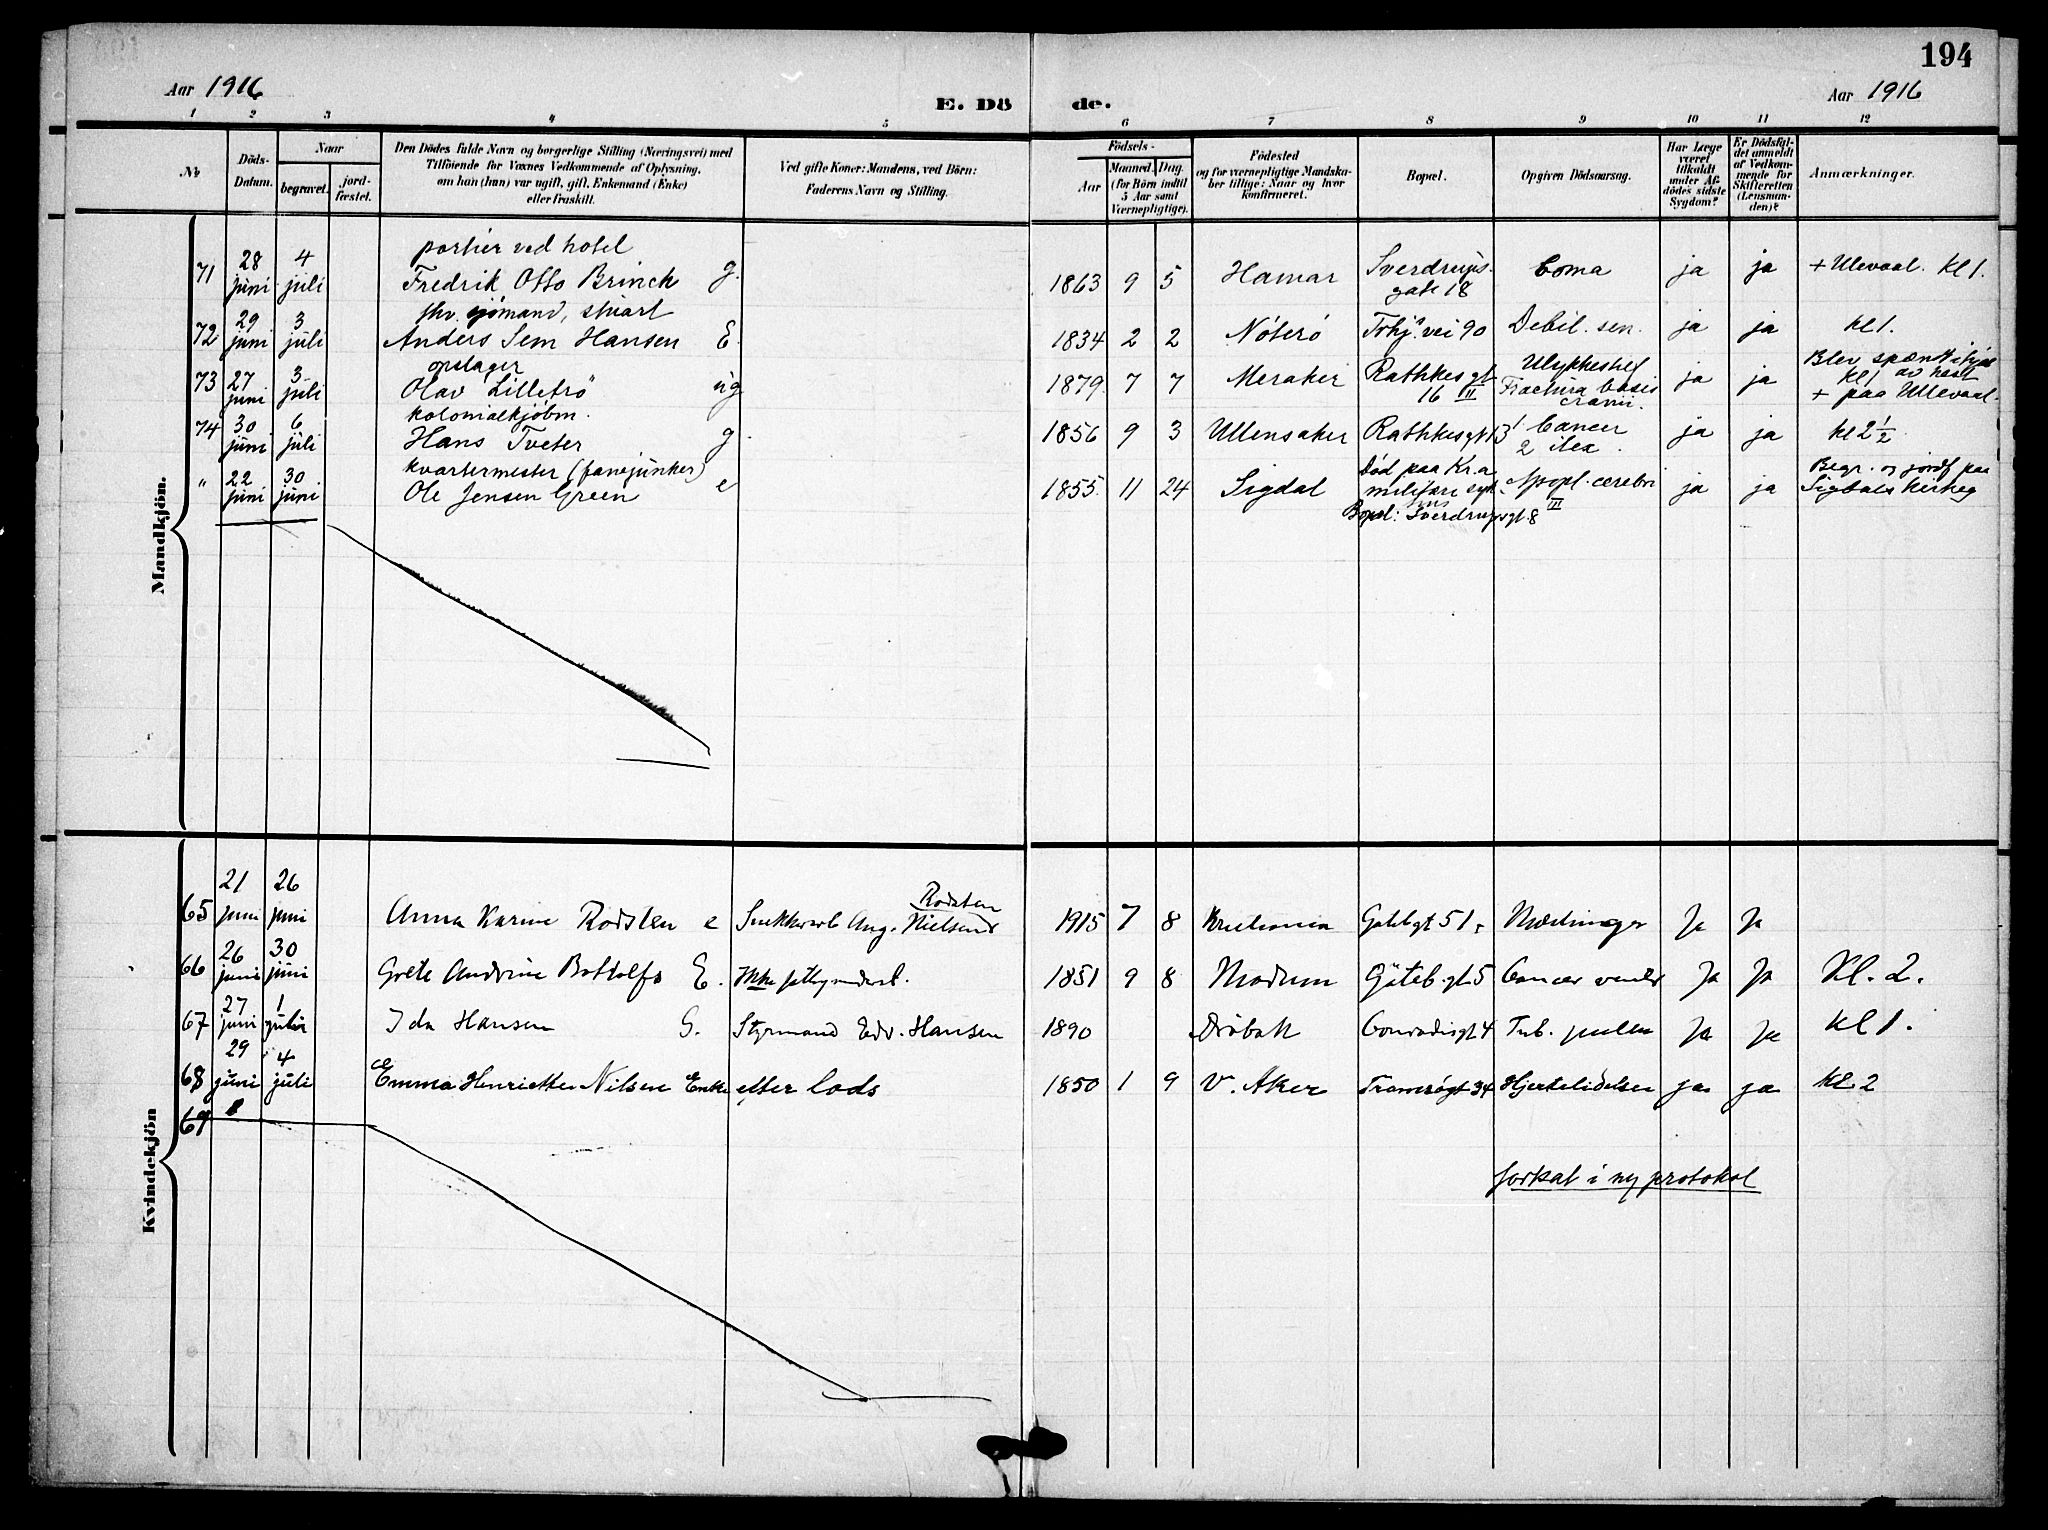 194
Aar 1916
E. Dö
de.
Aar 1916
1 2 3 4 5 6 7 8 9 10 11 12
№
Döds-
Datum.
Naar
begravet.
jord-
fæstet.
Den Dödes fulde Navn og borgerlige Stilling (Næringsvei) med
Tilföiende for Voxnes Vedkommende af Oplysning,
om han (hun) var ugift, gift, Enkemand (Enke)
eller fraskilt.
Ved gifte Koner: Mandens, ved Börn:
Faderens Navn og Stilling.
Födsels-
Aar
Maaned.
Dag.
(for Börn indtil
5 Aar samt
Værnepligtige).
Födested
og for værnepligtige Mandska-
ber tillige: Naar og hvor
konfirmeret.
Bopæl.
Opgiven Dödsaarsag.
Har Læge
været
tilkaldt
under Af-
dödes sidste
Sygdom?
Er Dödsfal-
det anmeldt
af Vedkom-
mende for
Skifteretten
(Lensman-
den)?
Anmærkninger.
Mandkjön.
portier ved hotel
71 28 juni 4 juli Fredrik Otto Brinck g. 1863 9 5 Hamar Sverdrups-gate 18 Coma ja ja + Ulevaal. Kl 1.
fhv. sjömand, stuart
72 29 juni 3 juli Anders Sem Hansen E 1834 2 2 Nöterö vei 90 Debil. sen. ja ja Kl 1.
opslager
73 27 juni 3 juli Olav Lilletrö ug 1879 7 7 Meraker Rathkes gt 16 II Ulykkestilf Fractura basis cranii. ja ja Blev spænt ihjæl av hest kl 1 + paa Ullevaal.
kolonialkjöbm.
74 30 juni 6 juli Hans Tveter g 1856 9 3 Ullensaker Rathkesgt 13 1 Cancer 2 ilea. ja ja kl 2 1/2
kvartermester (fanejunker)
" 22 juni 30 juni Ole Jensen Green e 1855 11 24 Sigdal Död paa Kr.a militære syk-hus Bopæl: Sverdrupsgt. 8 III Apopl. cerebri ja ja Begr. og jordf paa Sigdals kirkeg
Kvindekjön
65 21 juni 26 juni Anna Karine Rodsten e Snekkerarb Aug. Nielsens Rodsten 1915 7 8 Kristiania 51 Mæslinger Ja Ja
66 26 juni 30 juni Grete Andrine Bottolfs E. Ikke 1851 9 8 Modum Göteb.gt 5 Cancer ventr Ja Ja Kl. 2.
67 27 juni 1 juli Ida Hansen G. Styrmand Edv. Hansen 1890 Dröbak Conradisgt 4 Tub. pulm Ja Ja Kl 1.
68 29 juni 4 juli Emma Henriette Nilsen Enke efter lods 1850 1 9 V. Aker Tromsögt 34 Hjertelidelse ja ja Kl. 2
69
forksat i ny protokol